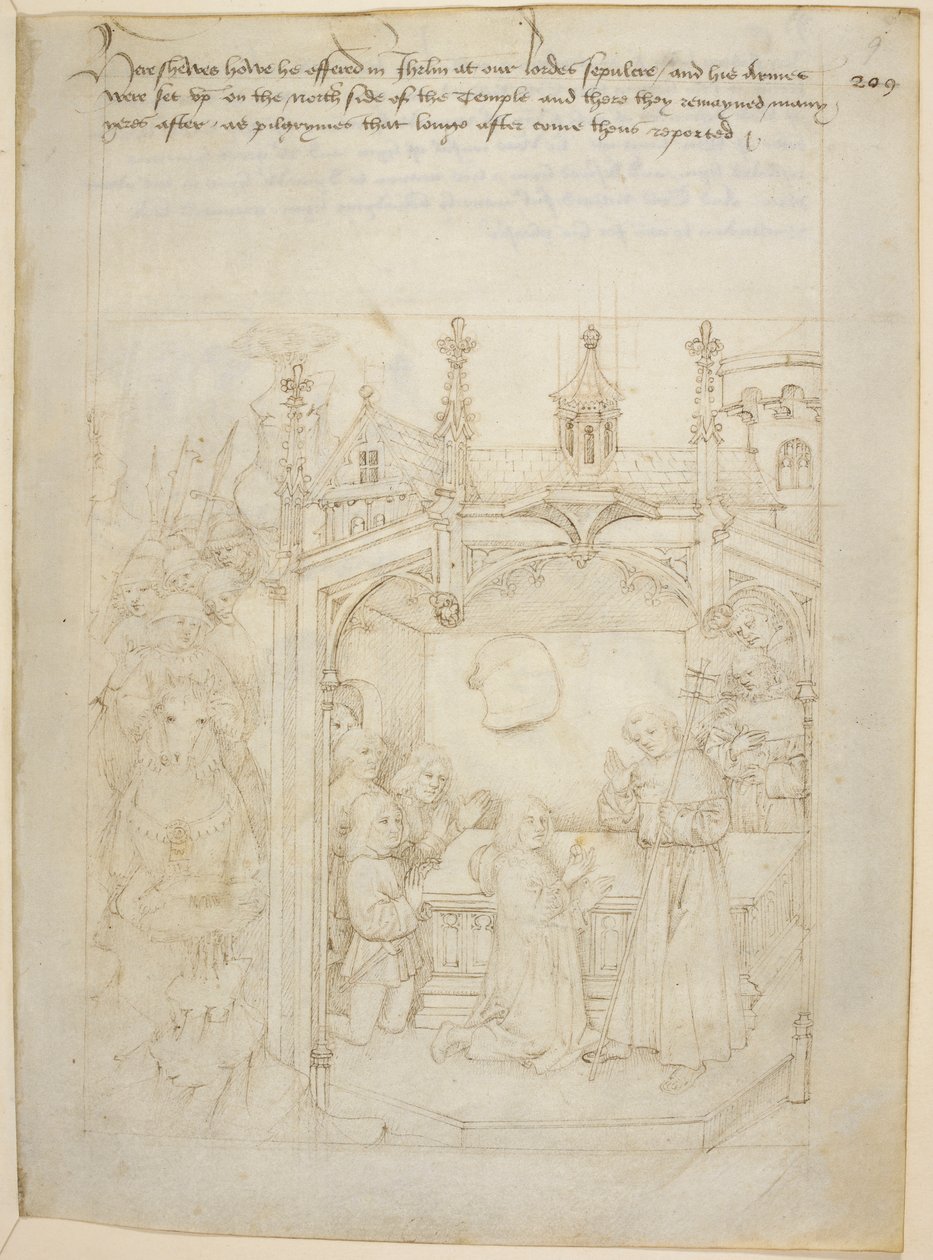 Here shewes howe he offered in Jhrlm at our lordes sepulcre / and his Armes
were set vp on the north side of the Temple and there they remayned many
yeres after / as pilgrymes that longe after come thens reported
209
9